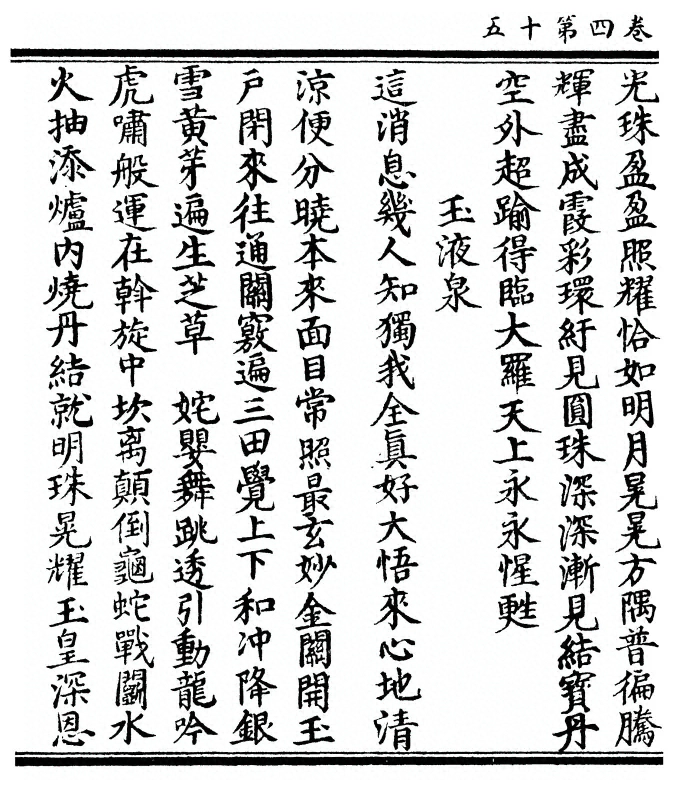 卷四第十五
光珠盈盈照耀恰如明月晃晃方隅普徧騰
輝盡成霞彩環紆見圓珠深深漸見結寶丹
空外超踰得臨大羅天上永永惺甦
玉液泉
這消息幾人知獨我全真好大悟來心地清
涼便分曉本來面目常照最玄妙金關開玉
戶閑來往通關竅遍三田覺上下和沖降銀
雪黃芽遍生芝草　姹嬰舞跳透引動龍吟
虎嘯般運在斡旋中坎离顛倒龜蛇戰鬭水
火抽添爐內燒丹結就明珠晃耀玉皇深恩